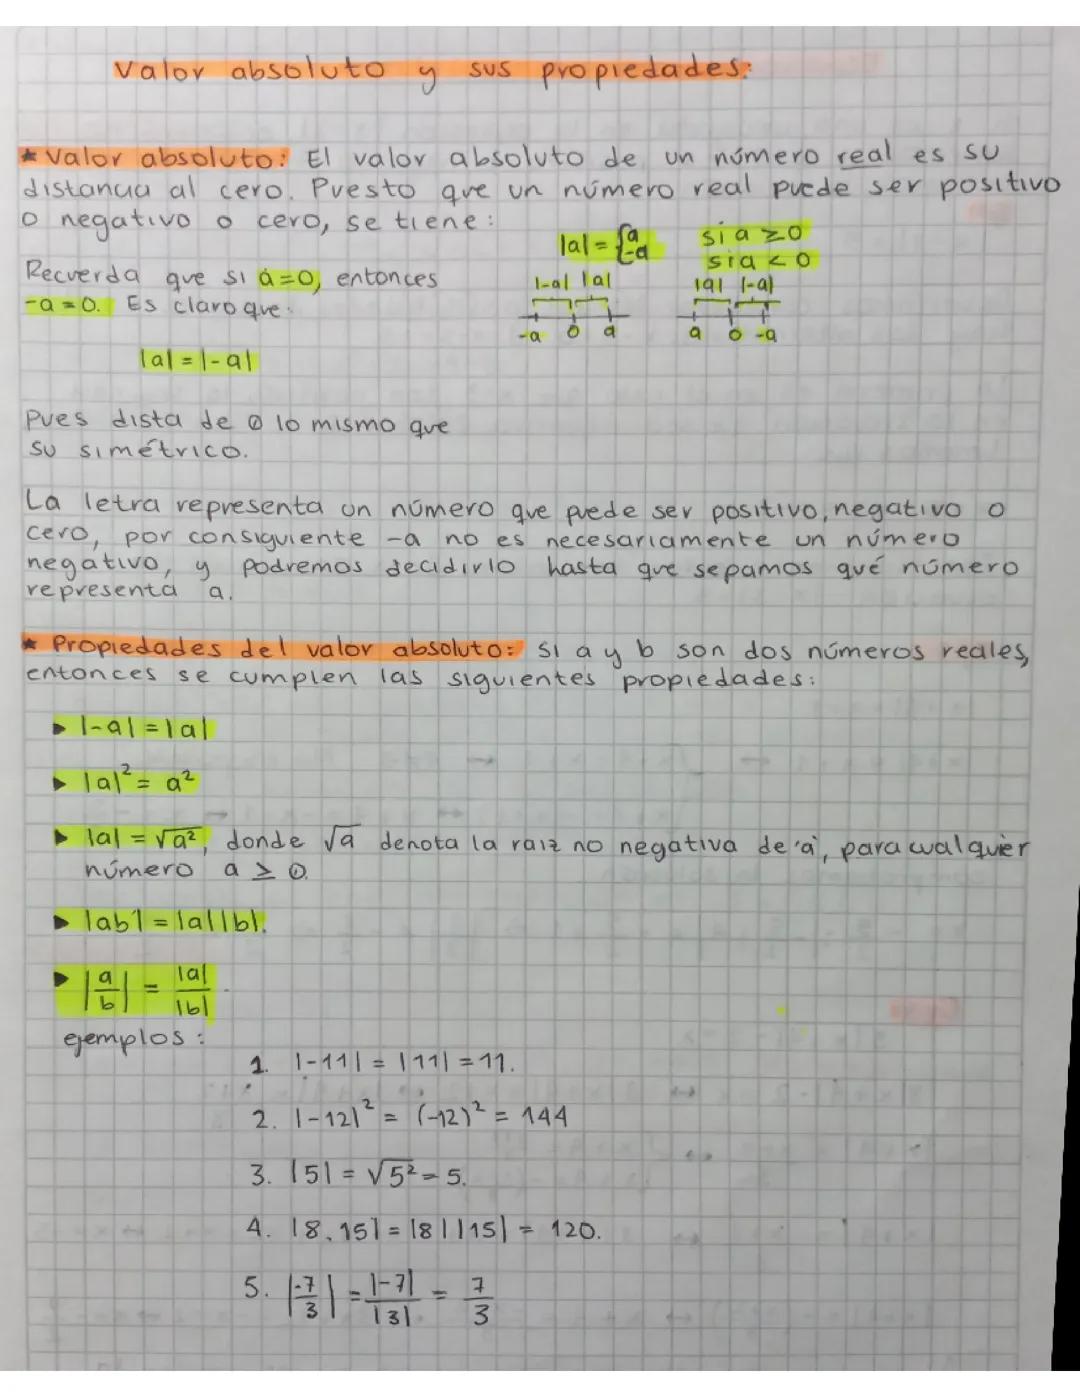 Valor absoluto y sus propiedades:
* Valor absoluto: El valor absoluto de un número real es su
distancia al cero. Puesto que un número real puede ser positivo
o negativo o cero, se tiene:
|a| = { a si a ≥ 0
-a si a < 0
Recuerda que si a=0, entonces
-a = 0. Es claro que:
|-a| |a|
-a 0 a
|a| |-a|
a 0 -a
|a| = |-a|
Pues dista de 0 lo mismo que
su simétrico.
La letra representa un número que puede ser positivo, negativo o
cero, por consiguiente -a no es necesariamente un número
negativo, y podremos decidirlo hasta que sepamos qué número
representa a.
* Propiedades del valor absoluto: Si a y b son dos números reales,
entonces se cumplen las siguientes propiedades:
▸ |-a| = |a|
▸ |a|² = a²
▸ |a| = √a², donde √a denota la raiz no negativa de 'a', para cualquier
número a ≥ 0.
▸ |ab| = |a||b|.
▸ |a/b| = |a|/|b|.
ejemplos:
1. |-11| = |11| = 11.
2. |-12|² = (-12)² = 144
3. |5| = √5² = 5.
4. |8.15| = |8||15| = 120.
5. |-7/3| = |-7|/|3| = 7/3